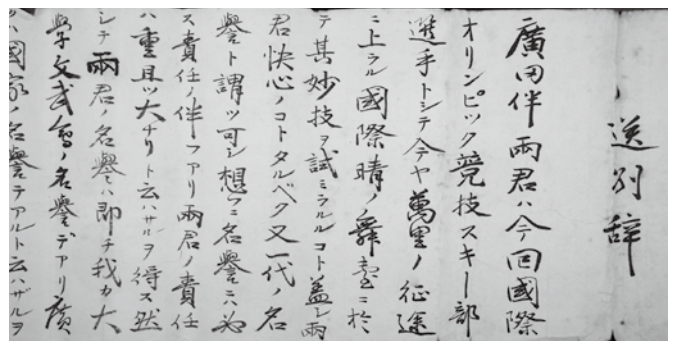 送別辞
廣田伴兩君ハ今回國際
オリンピック競技スキー部
選手トシテ今ヤ萬里ノ征途
ニ上ラル國際晴ノ舞臺ニ於
テ其妙技ヲ試ミラルルコト蓋シ兩
君快心ノコトタルベク又一代ノ名
譽ト謂ツ可シ想フニ名譽ニハ必
ス責任ノ伴フアリ兩君ノ責任
ハ重且ツ大ナリト云ハサルヲ得ス然
シテ兩君ノ名譽ハ即チ我カ大
學文武會ノ名譽デアリ廣
ク國家ノ名譽デアルト云ハザルヲ